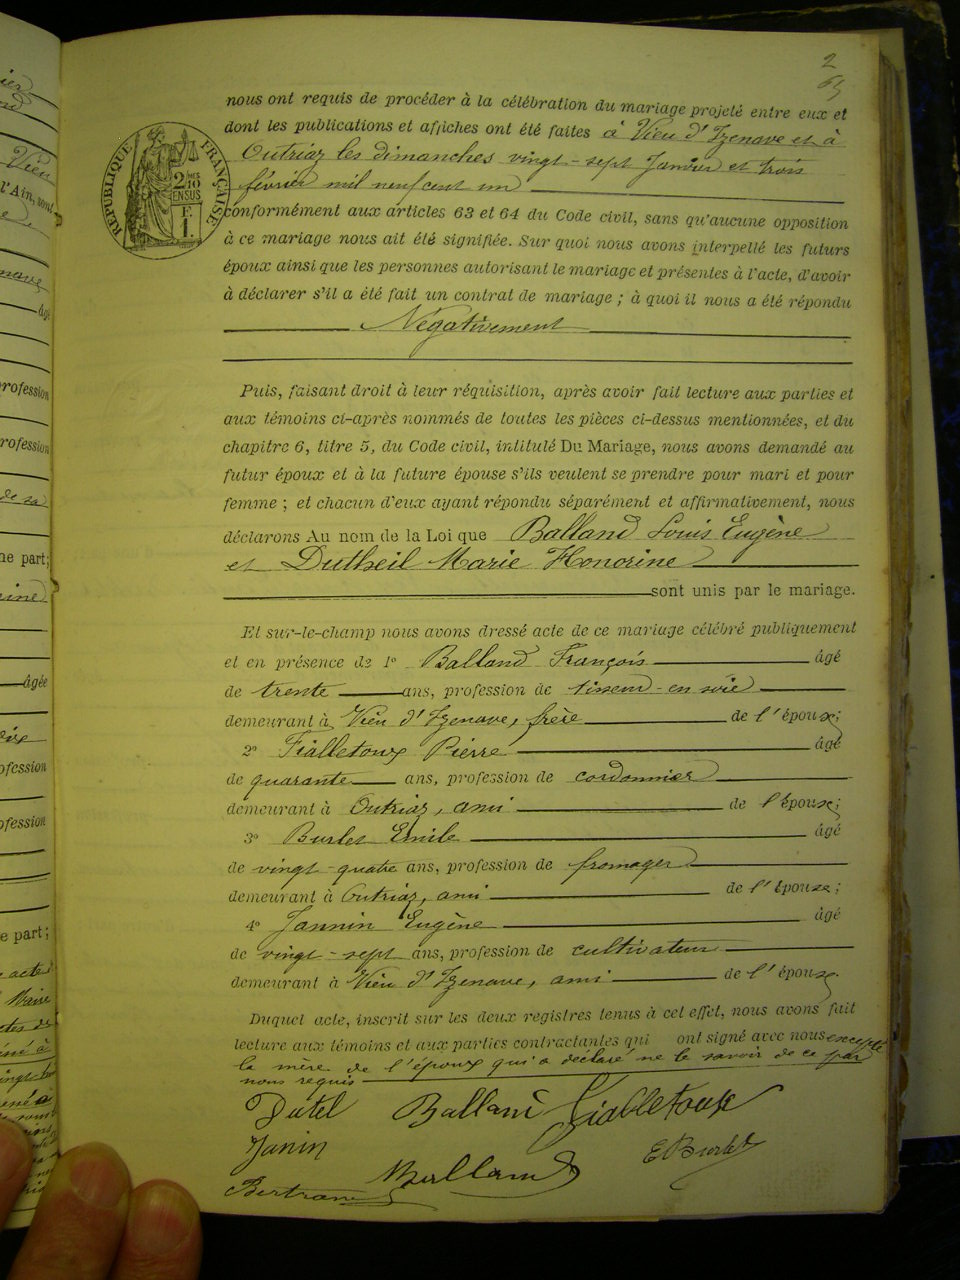 2
65
nous ont requis de procéder à la célébration du mariage projeté entre eux et
dont les publications et affiches ont été faites à Vieu d'Izenave et à
Outriaz les dimanches vingt-sept Janvier et trois
février mil neuf cent un
RÉPUBLIQUE FRANÇAISE
2/10 EN SUS
F. 1.
conformément aux articles 63 et 64 du Code civil, sans qu'aucune opposition
à ce mariage nous ait été signifiée. Sur quoi nous avons interpellé les futurs
époux ainsi que les personnes autorisant le mariage et présentes à l'acte, d'avoir
à déclarer s'il a été fait un contrat de mariage ; à quoi il nous a été répondu
Négativement
Puis, faisant droit à leur réquisition, après avoir fait lecture aux parties et
aux témoins ci-après nommés de toutes les pièces ci-dessus mentionnées, et du
chapitre 6, titre 5, du Code civil, intitulé Du Mariage, nous avons demandé au
futur époux et à la future épouse s'ils veulent se prendre pour mari et pour
femme ; et chacun d'eux ayant répondu séparément et affirmativement, nous
déclarons Au nom de la Loi que Balland Louis Eugène
et Dutheil Marie Honorine
sont unis par le mariage.
Et sur-le-champ nous avons dressé acte de ce mariage célébré publiquement
et en présence de 1° Balland François âgé
de trente ans, profession de tisseur-en soie
demeurant à Vieu d'Izenave, frère de l'époux;
2° Fialletoux Pierre âgé
de quarante ans, profession de cordonnier
demeurant à Outriaz, ami de l'époux;
3° Burlet Emile âgé
de vingt-quatre ans, profession de fromager
demeurant à Outriaz, ami de l'épouse;
4° Jannin Eugène âgé
de vingt-sept ans, profession de cultivateur
demeurant à Vieu d'Izenave, ami de l'époux.
Duquel acte, inscrit sur les deux registres tenus à cet effet, nous avons fait
lecture aux témoins et aux parties contractantes qui ont signé avec nous excepté
la mère de l'époux qui a déclaré ne le savoir de ce par
nous requis
Dutel Balland Fialletoux
Janin E Burlet
Balland
Bertrand